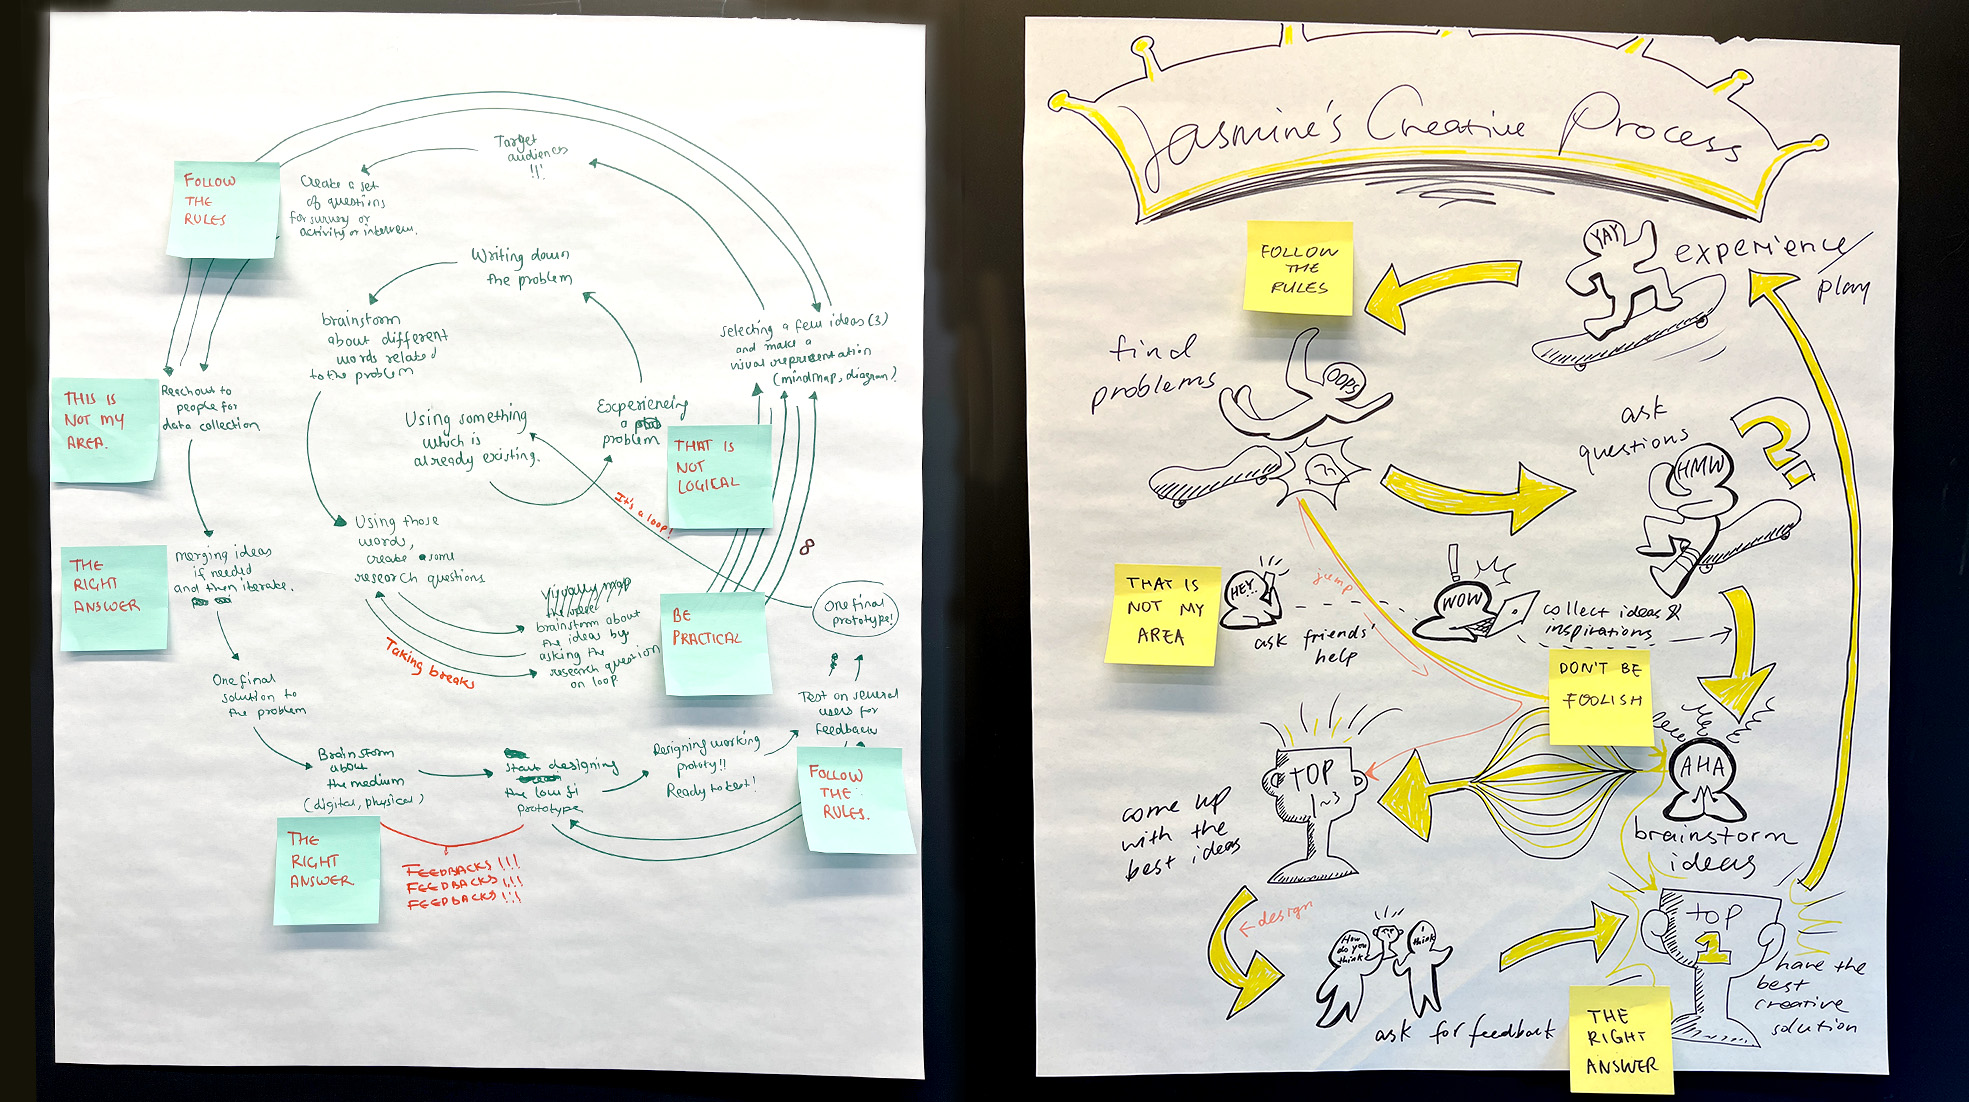 Target
audiences
!!!
Create a set
of questions
for survey or
activity or interview.
FOLLOW
THE
RULES
Writing down
the problem
brainstorm
about different
words related
to the problem
selecting a few ideas (3)
and make a
visual representation
(mindmap, diagram)
THIS IS
NOT MY
AREA.
Reachout to
people for
data collection
Using something
which is
already existing.
Experiencing
a
problem
THAT IS
NOT
LOGICAL
It's a loop!
Using those
words,
create some
research questions
THE
RIGHT
ANSWER
merging ideas
if needed
and then iterate.
visually map
the
brainstorm about
the ideas by
asking the
research question
on loop
Taking breaks
BE
PRACTICAL
8
One final
prototype!
One final
solution to
the problem
Test on several
users for
feedback
Brainstorm
about
the medium
(digital, physical)
Start designing
the low fi
prototype
Designing working
prototy!!
Ready to test!
FOLLOW
THE
RULES.
THE
RIGHT
ANSWER
FEEDBACKS !!!
FEEDBACKS !!!
FEEDBACKS !!!
Jasmine's Creative Process
FOLLOW
THE
RULES
YAY
experience/
play
find
problems
OOPS
ask
questions
HMW
?
THAT IS
NOT MY
AREA
HEY!.
ask friends'
help
jump
!
WOW
collect ideas &
inspirations
DON'T BE
FOOLISH
AHA
brainstorm
ideas
TOP
1~3
come up
with the
best ideas
design
How
do you
think?
I
think
ask for feedback
TOP
1
have the
best
creative
solution
THE
RIGHT
ANSWER